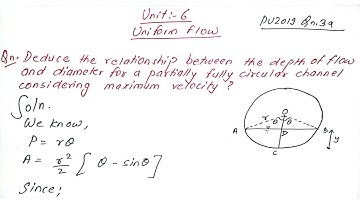 Unit:- 6
Uniform flow
PU2019 Qn.3a
Qn:- Deduce the relationship between the depth of flow
and diameter for a partially fully circular channel
considering maximum velocity ?
Soln.
We know,
P = rθ
A = r²/2 [ θ - sinθ ]
Since;
O
r θ θ
A D B
C
y